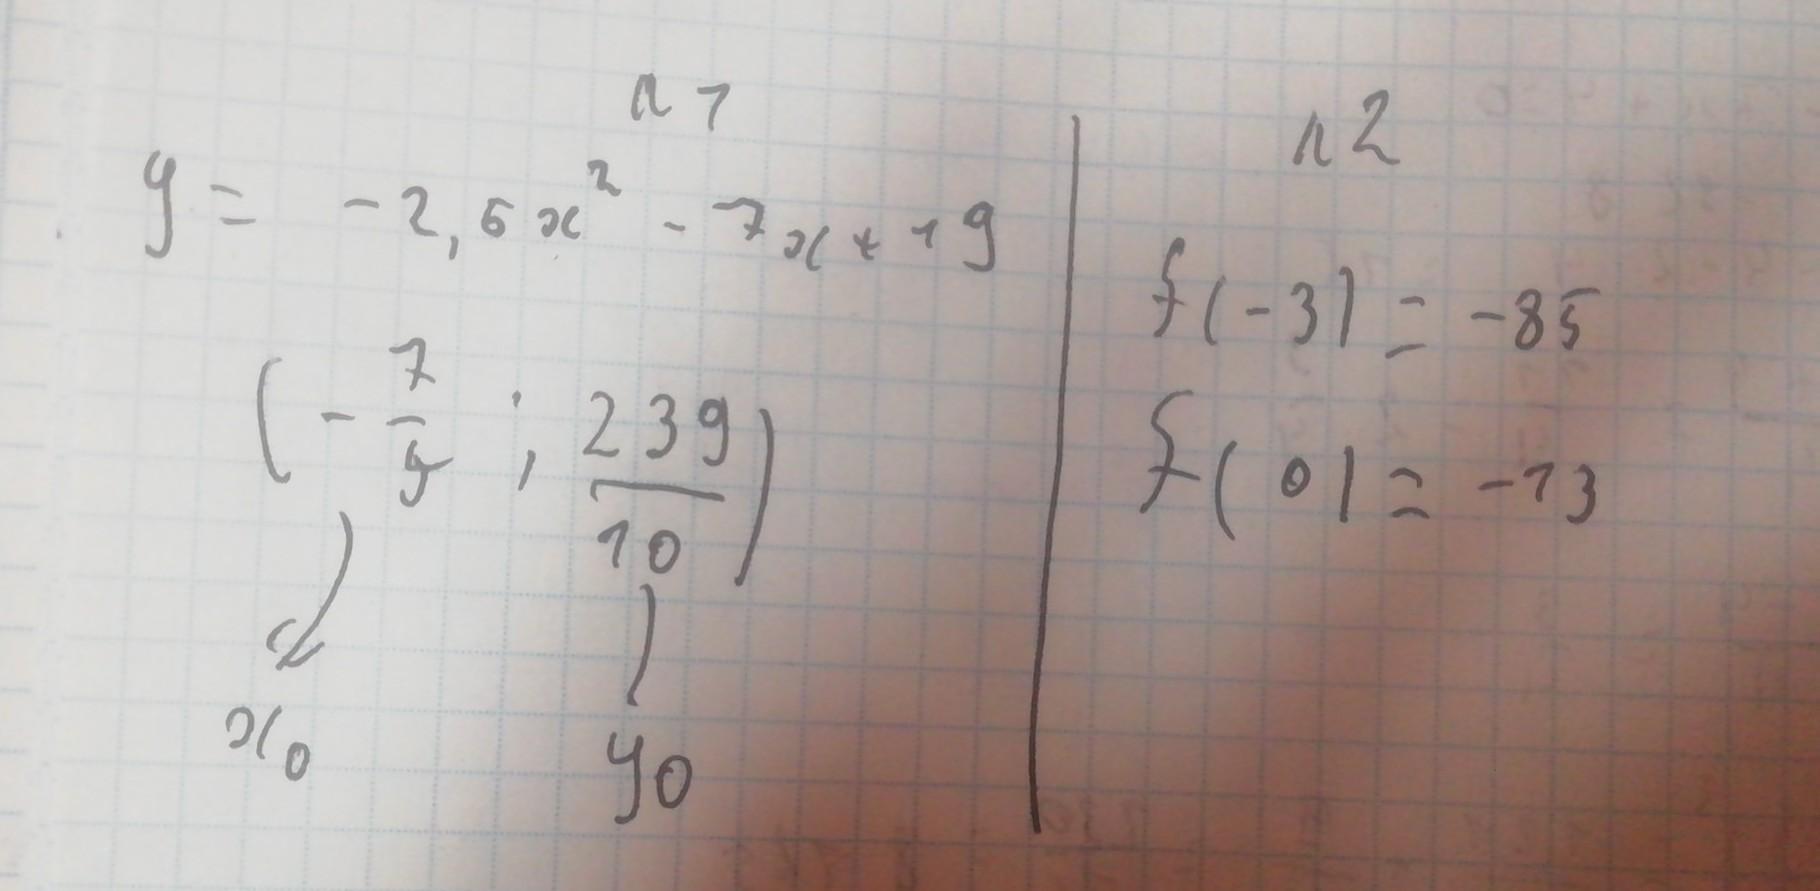 n1
y = -2,5x² - 7x + 19
(-7/5 ; 239/10)
x₀ y₀
n2
f(-3) = -85
f(0) = -13